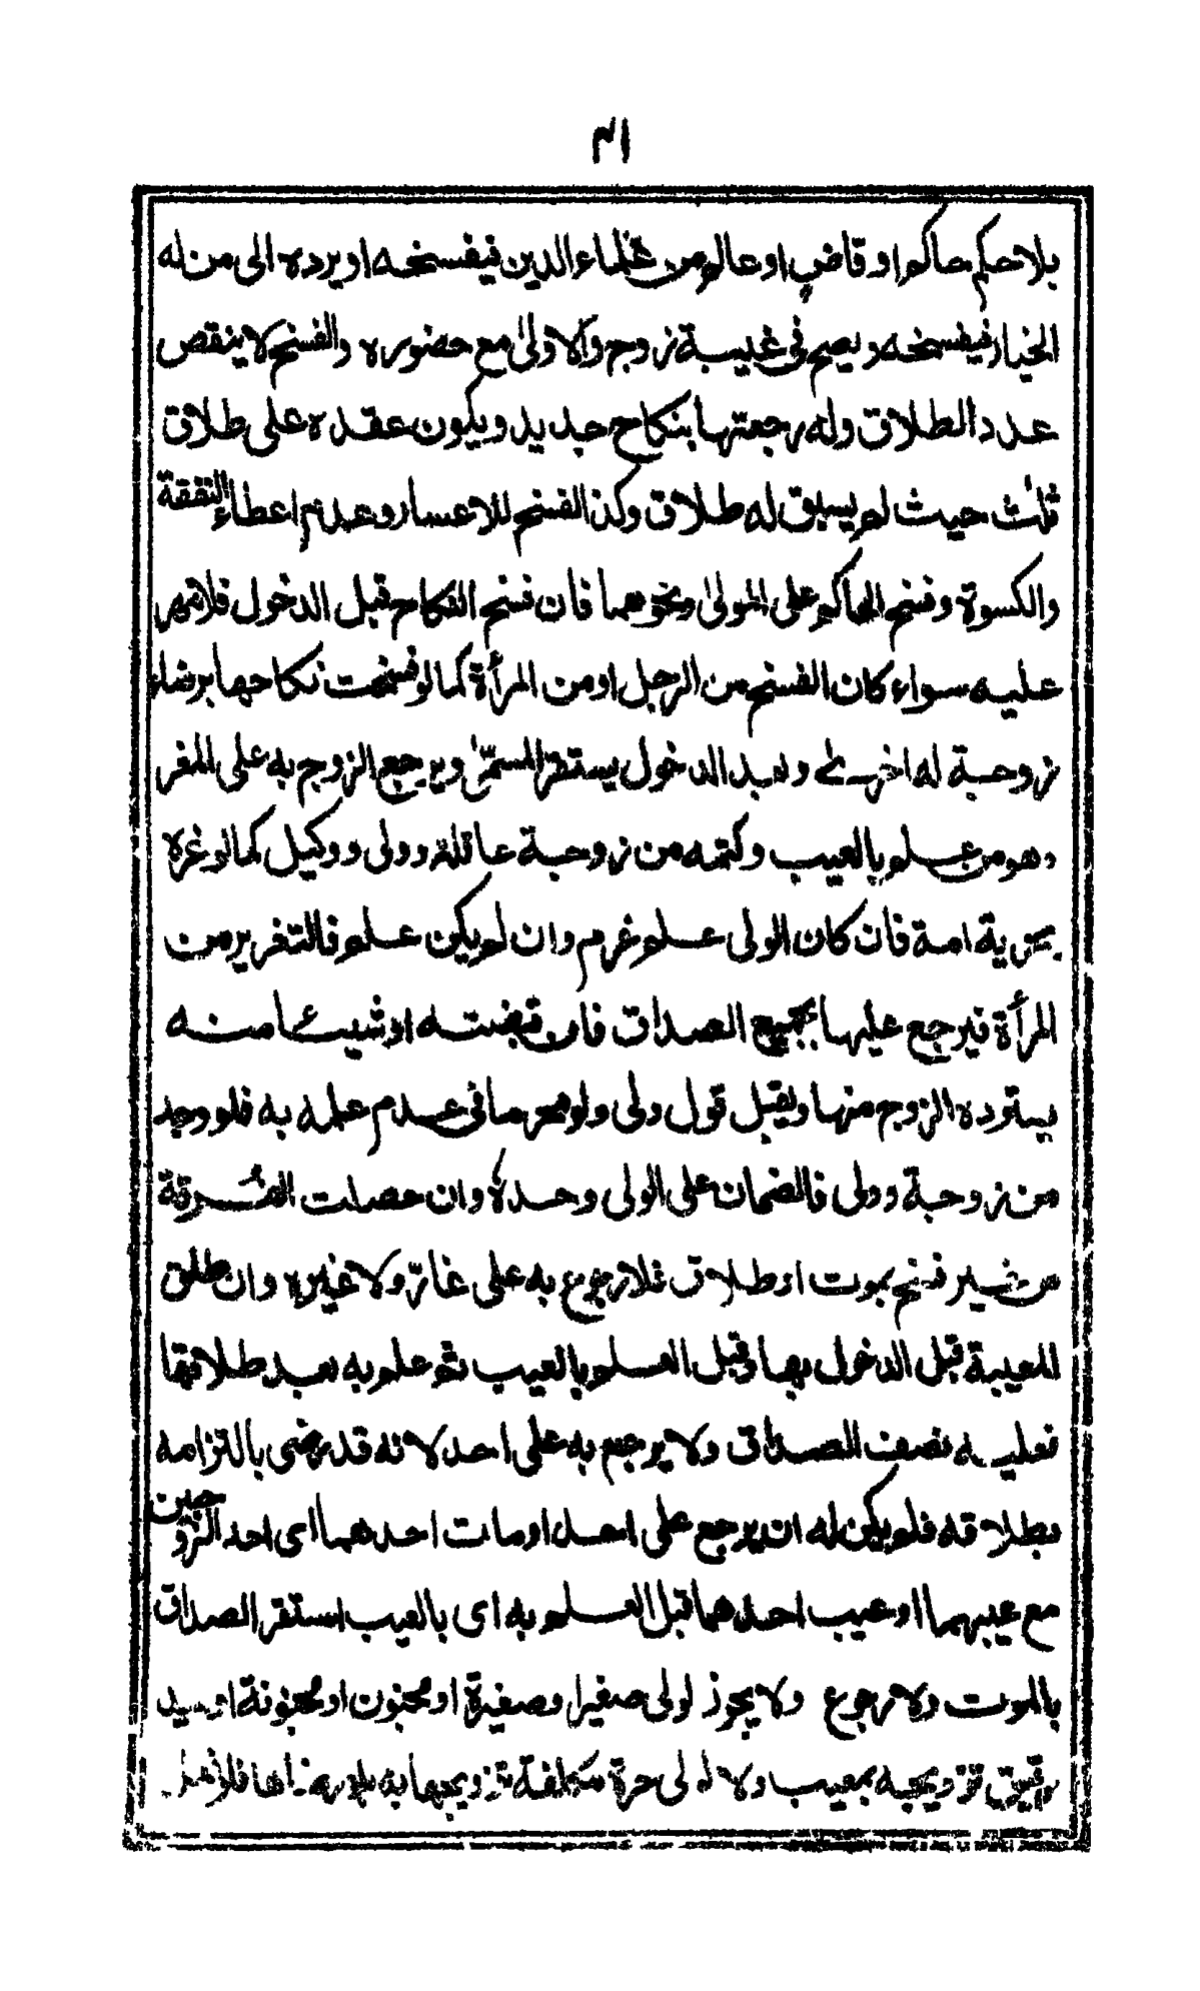 ٣١
بلا حكم حاكم او قاض او عالم من علماء الدين فيفسخه او يرده الى من له
الخيار فيفسخه ويصح في غيبة زوج والاولى مع حضوره والفسخ لا ينقص
عدد الطلاق وله رجعتها بنكاح جديد ويكون عقده على طلاق
ثلث حيث لم يسبق له طلاق وكذا الفسخ للاعسار وعدم اعطاء النفقة
والكسوة وفسخ الحاكم على المولى ونحوهما فان فسخ النكاح قبل الدخول فلا مهر
عليه سواء كان الفسخ من الرجل او من المرأة كما لو فسخت نكاحها برضاء
زوجة له اخرى وبعد الدخول يستقر المسمى ويرجع الزوج به على المغر
وهو من علم بالعيب وكتمه من زوجة عاقلة وولى ووكيل كما لو غره
بحرية امة فان كان الولى علم غرم وان لم يكن علم فالتغرير من
المرأة فيرجع عليها بجميع الصداق فان قبضته او شيئا منه
يستوده الزوج منها ويقبل قول ولى ولو محرما في عدم علمه به فلو وجد
من زوجة وولى فالضمان على الولى وحده وان حصلت الفرقة
من غير فسخ بموت او طلاق فلا رجوع به على غار ولا غيره وان طلق
المعيبة قبل الدخول بها وقبل العلم بالعيب ثم علم به بعد طلاقها
فعليه نصف الصداق ولا يرجع به على احد لانه قد رضى بالتزامه
بطلاقه فلم يكن له ان يرجع على احد او مات احدهما اى احد الزوجين
مع عيبهما او عيب احدهما قبل العلم به اى بالعيب استقر الصداق
بالموت ولا رجوع ولا يجوز لولى صغير وصغيرة او مجنون او مجنونة او سيد
رقيق تزويجه بمعيب ولا لولى حرة مكلفة تزويجها به بلا رضاها فلا